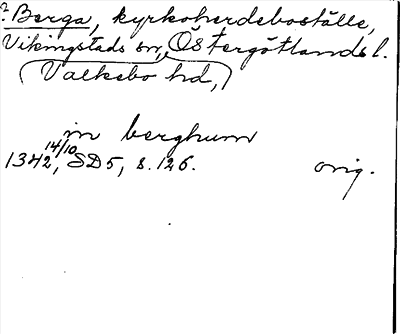 ? Berga, kyrkoherdeboställe,
Vikingstads sn, Östergötlands l.
(Valkebo hd,)
in berghum
1342 14/10, SD 5, s. 126. orig.